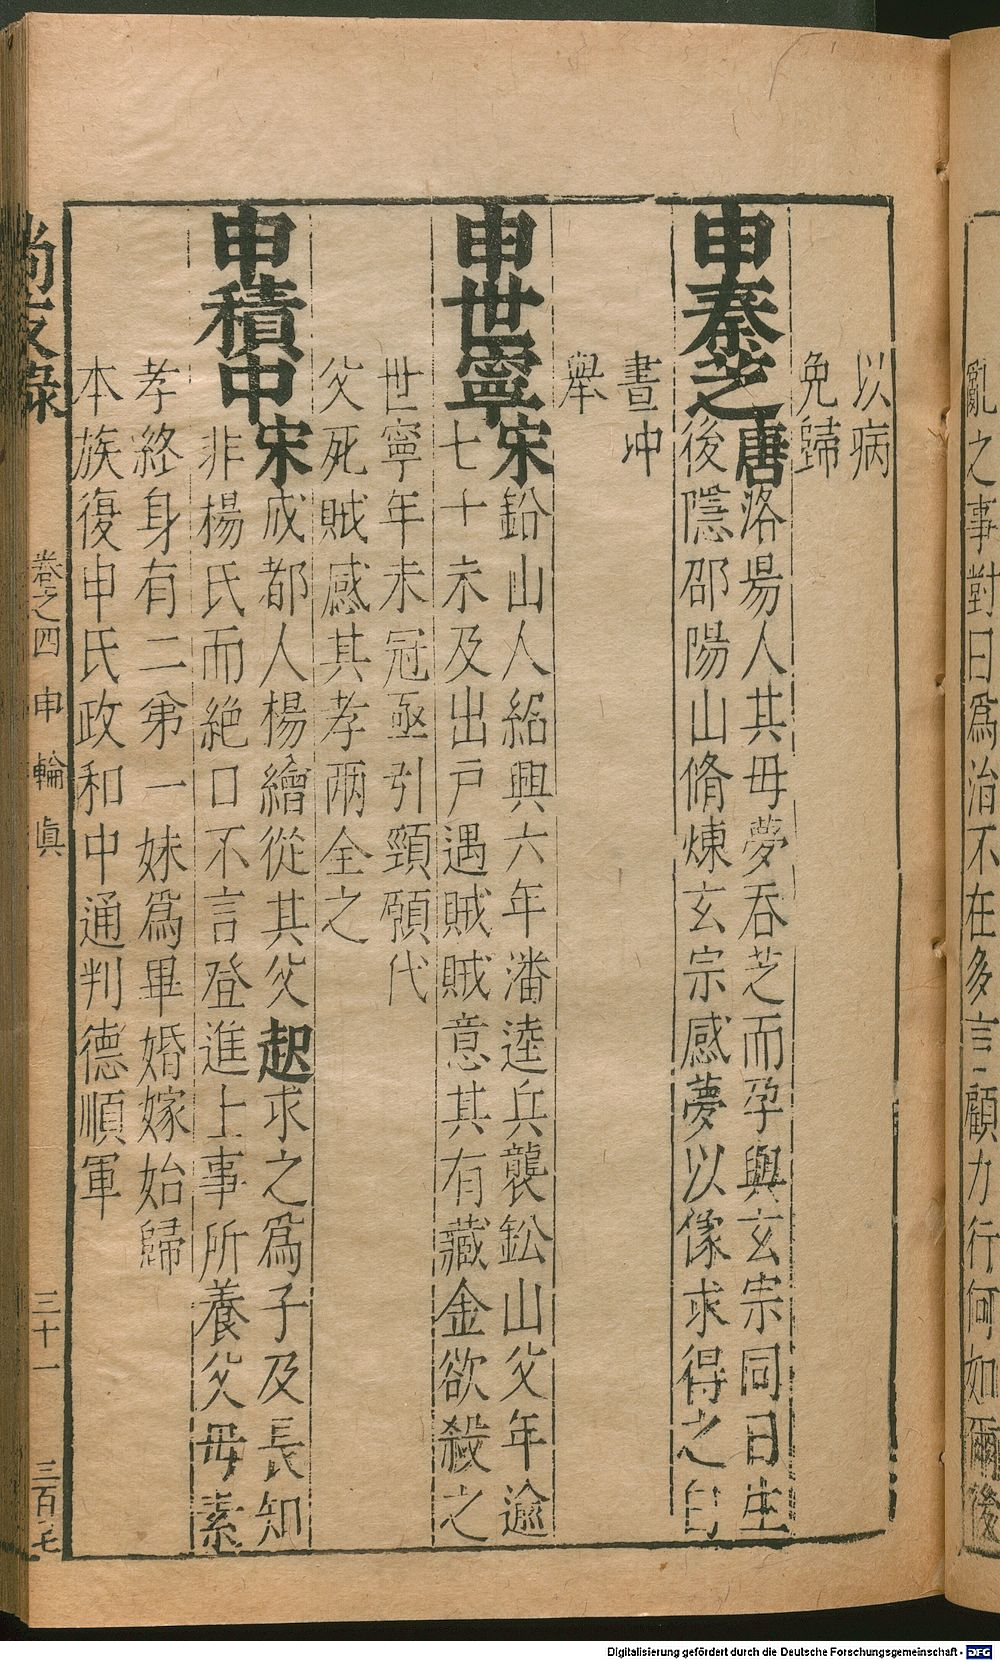 亂之事對曰爲治不在多言顧力行何如爾後
以病
免歸
申泰芝唐洛陽人其母夢吞芝而孕與玄宗同日生
後隱邵陽山脩煉玄宗感夢以像求得之白
晝冲
舉
申世寧宋鉛山人紹興六年潘逵兵襲鉛山父年逾
七十未及出戸遇賊賊意其有藏金欲殺之
世寧年未冠亟引頸願代
父死賊感其孝兩全之
申積中宋成都人楊繪從其父起求之爲子及長知
非楊氏而絕口不言登進士事所養父母素
孝終身有二弟一妹爲畢婚嫁始歸
本族復申氏政和中通判德順軍
尚友錄 卷之四 申 輪 眞 三十一 三百七
Digitalisierung gefördert durch die Deutsche Forschungsgemeinschaft - DFG